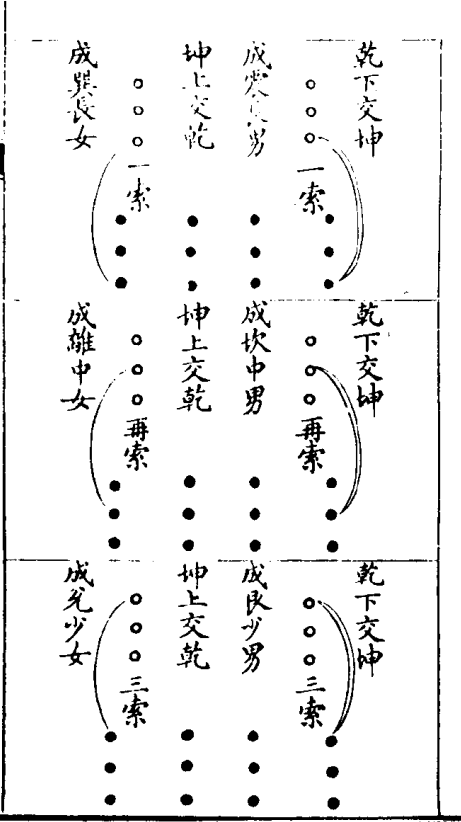 乾下交坤
一索
成震長男
坤上交乾
一索
成巽長女
乾下交坤
再索
成坎中男
坤上交乾
再索
成離中女
乾下交坤
三索
成艮少男
坤上交乾
三索
成兌少女